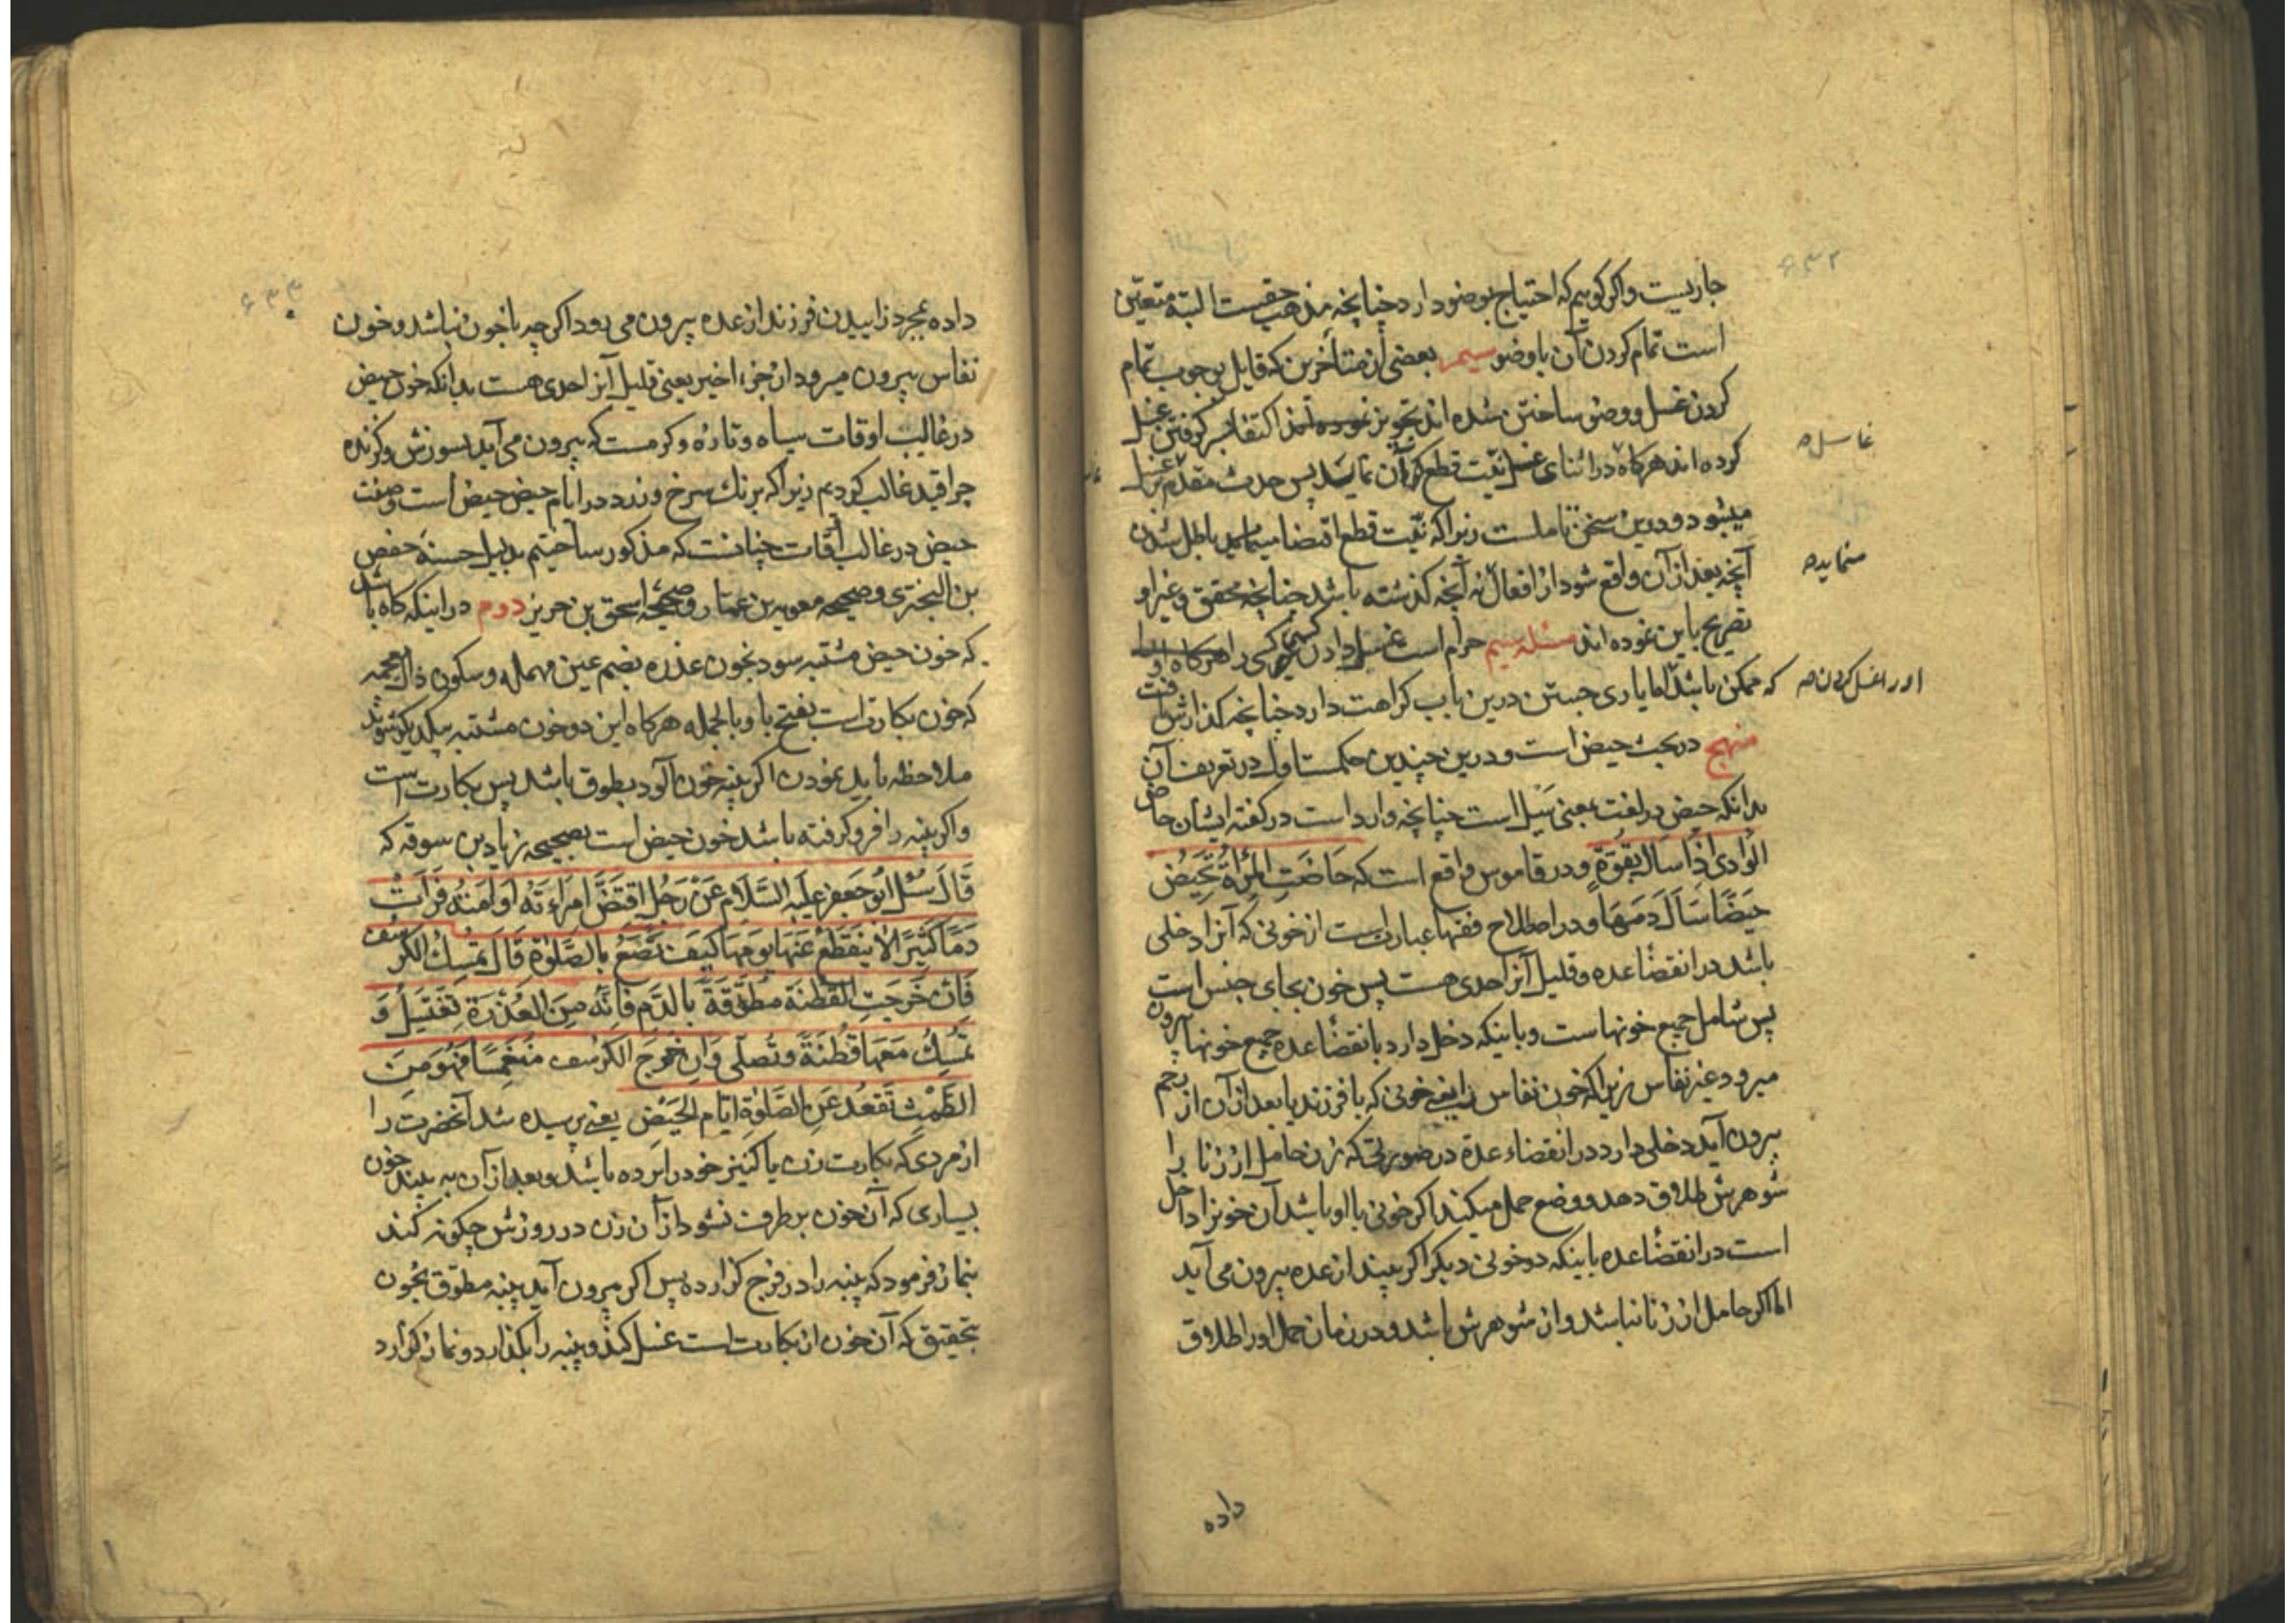 ۶۳۲
جاریست و اگر کوییم که احتیاج بوضو دارد چنانچه مذهب حقیست البته متعیّن
است تمام کردن آن با وضو سیم بعضی از متأخرین که قایل بوجوب تمام
کردن غسل و وضو ساختن شده اند تجویز اکتفا بسر کرفتن غسل
کرده اند هرکاه در اثنای غسل نیّت قطع کردن آن نماید پس حدث مقدّم
غاسل صح
میشود و درین سخن تاملست زیرا که نیّت قطع اقتضا باطل شدن
آنچه بعد از آن واقع شود از افعال نه آنچه کذشته باشد چنانچه محقق و غیر او
مینماید صح
تصریح باین نموده اند مسئله سیم حرام است غسل دادن کسی را
او را غسل کردن صح
که ممکن باشد اما یاری جستن درین باب کراهت دارد چنانچه کذارش یافت
منهج در بحث حیض است و درین چندین حکمست اول در تعریف آن
بدانکه حیض در لغت بمعنی سیل است چنانچه وارد است در کفته ایشان حاض
الوادی اذا سال بقوّة و در قاموس واقع است که حاضَتِ المرأة تَحیضُ
حیضًا سَالَ دَمها و در اصطلاح فقها عبارتست از خونی که آنرا دخلی
باشد در انقضاء عده و قلیل آنرا حدی هست پس خون بجای جنس است
پس شامل جمیع خونهاست و باینکه دخل دارد با نقضاء عده جمیع خونها بیرون
میرود غیر نفاس زیرا که خون نفاس یعنی خونی که با فرزند یا بعد از آن از رحم
بیرون آید دخلی دارد در انقضاء عدّة در صورتی که زن حامل از زنا را
شوهرش طلاق دهد و وضع حمل میکند اکر خونی با او باشد آن خونرا داخل
است در انقضاء عده باینکه دو خونی دیکر اکر بیند از عده بیرون می آید
امّا اکر حامل از زنا نباشد و از شوهرش باشد و در زمان حمل او را طلاق
داده
۶۳۳
داده بمجرد زاییدن فرزند از عده بیرون می رود اکرچه با خون نباشد و خون
نفاس بیرون میرود از جزء اخیر یعنی قلیل آنرا حدی هست بدانکه خون حیض
در غالب اوقات سیاه و تازه و کرمست که بیرون می آید بسوزش و کزنده
چرا قید غالب کردیم زیرا که برنک سرخ و زرد در ایام حیض حیض است و صفت
حیض در غالب اوقات چنانست که مذکور ساختیم بدلیل حسنهٔ حفص
بن البختری و صحیحه معویه بن عمّار و صحیحه اسحق بن حریز دوم در اینکه کاه باشد
که خون حیض مشتبه شود بخون عذره بضم عین مهمله و سکون ذال معجمه
که خون بکارتست بفتح با و بالجمله هرکاه این دو خون مشتبه بیکدیکر شوند
ملاحظه باید نمودن اکر پنبه خون آلود بطوق باشد پس بکارت است
و اکر پنبه را فرو کرفته باشد خون حیض است بصحیحه زیاد بن سوقه که
قَالَ سُئِلَ ابُو جَعفر عَلَیهِ السَّلام عَنْ رَجُلٍ اقتَضَّ امرَاءَتَه اَو اَمَتهُ فَرَاَتْ
دَمًا کَثیرًا لا یَنقَطِعُ عَنهَا یَومَهَا کَیفَ تَصْنَعُ بالصَّلوةِ قَالَ تمسِكُ الکُرسُف
فَاِن خَرجَتِ القُطنَة مُطَوَّقَةً بِالدَّم فَاِنَّه مِنَ العُذْرَةِ تَغْتَسِلُ وَ
تمسِكُ مَعَها قُطنَةً وتُصلّی وَاِن خَرَجَ الکُرسُف مُنغَمِسًا فَهُوَ مِنَ
الطَّمْثِ تَقعُدُ عَنِ الصَّلوةِ ایّام الحَیْضِ یعنی پرسیده شد آنحضرت را
از مردی که بکارت زن یا کنیز خود را برده باشد و بعد از آن به بیند خون
بسیاری که آن خون برطرف نشود از آن زن در روزش چکونه کند
بنماز فرمود که پنبه را در فرج کزارده پس اکر بیرون آید پنبه مطوّق بخون
بتحقیق که آن خون از بکارت است غسل کند و پنبه را بکذارد و نماز کزارد